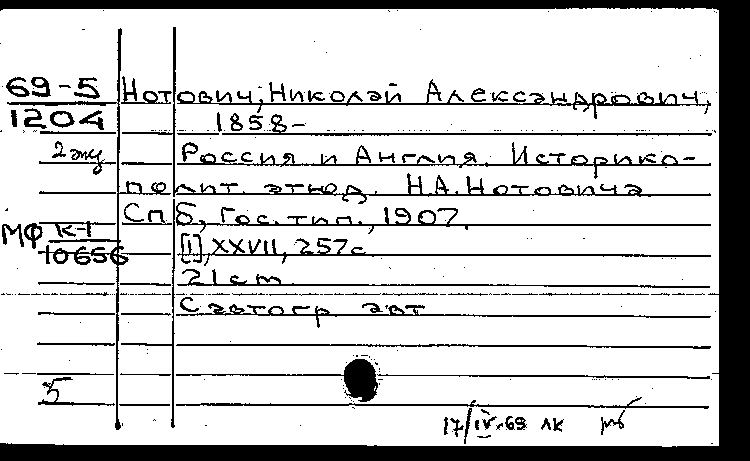 69-5 Нотович, Николай Александрович,
1204 1858-
2 экз Россия и Англия. Историко-
полит. этюд. Н.А. Нотовича
Спб, Гос. тип., 1907.
МФ К-1
10656 [1], XXVII, 257с
21 cm
С автогр авт
5
17/IV-69 ЛК